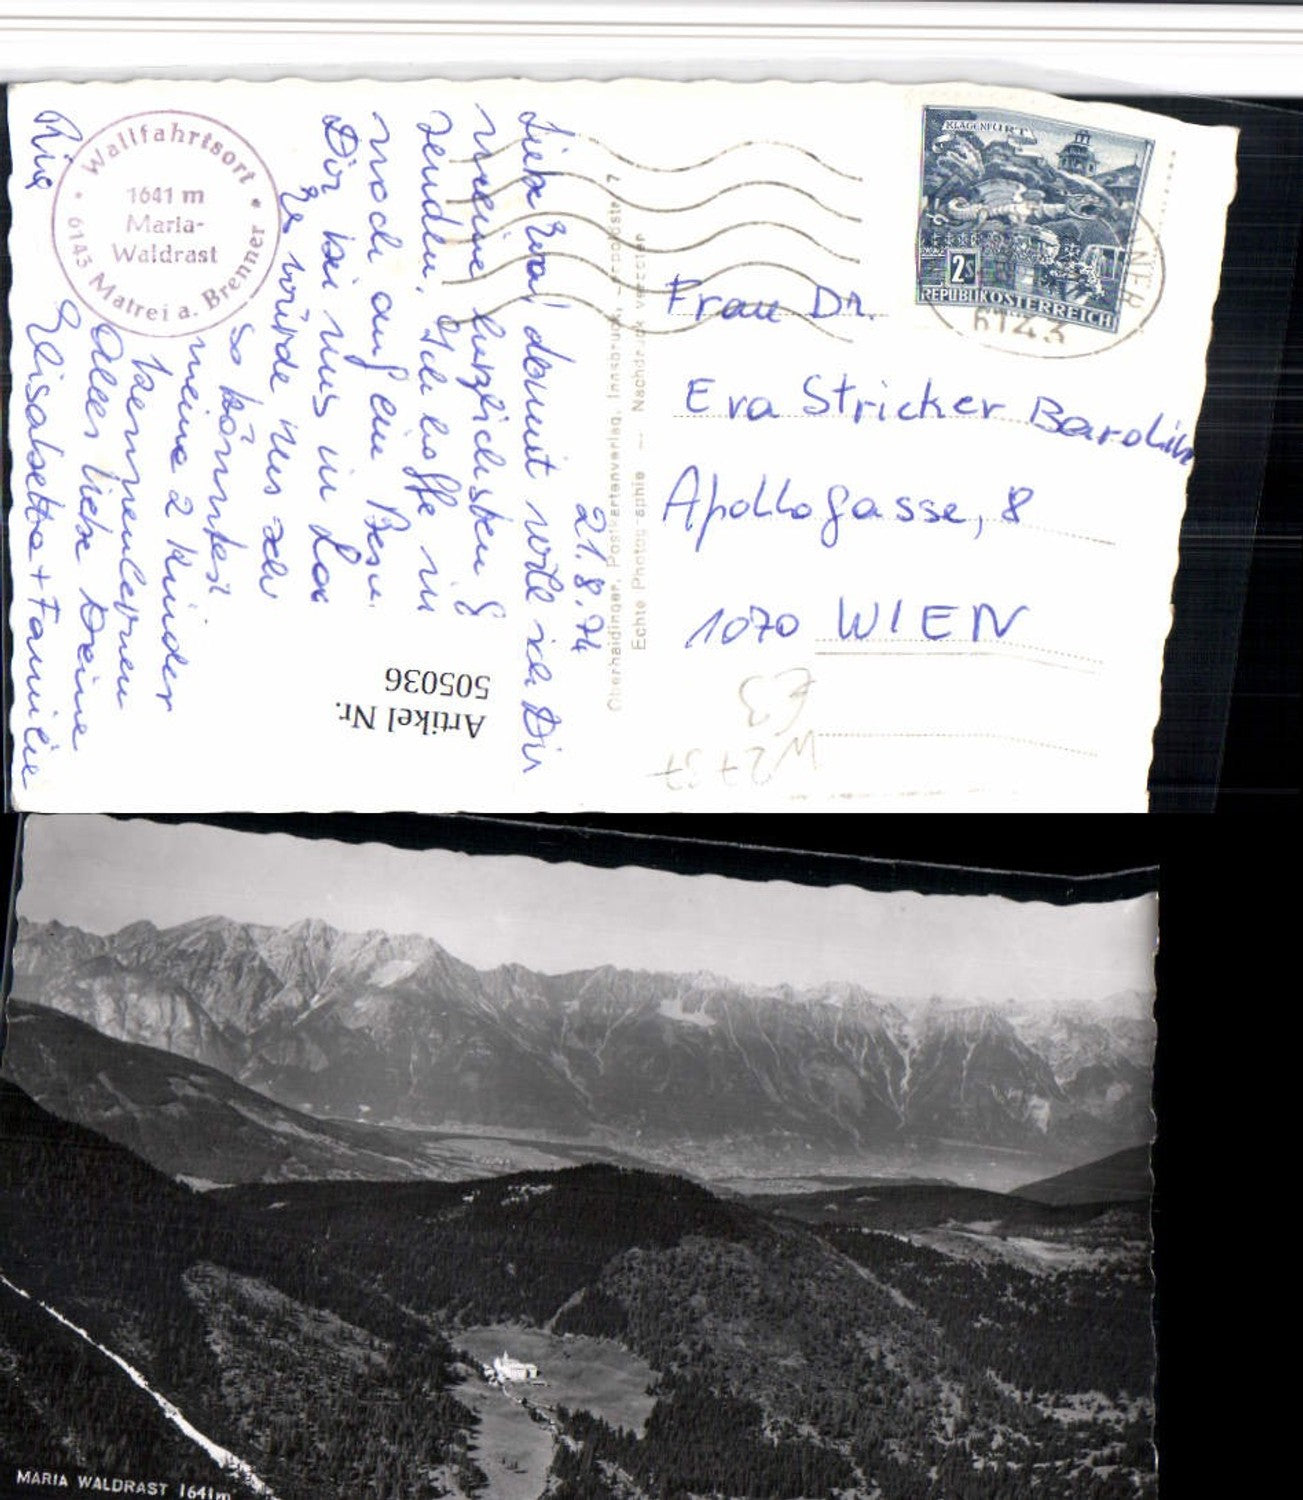 Wallfahrtsort
1641 m
Maria-
Waldrast
6143 Matrei a. Brenner
21.8.74
Liebe Eva! damit will ich Dir
meine herzlichsten
senden. Ich hoffe in
noch auf ein Besu
Dir bei uns in
Es würde uns sehr
So könntest
meine 2 Kinder
kennenlernen
Alles liebe Deine
Elisabetta + Familie
Artikel Nr.
505036
Oberhaidinger, Postkartenverlag, Innsbruck,
Echte Photographie — Nachdruck verboten
KLAGENFURT
2S
REPUBLIK ÖSTERREICH
6143
Frau Dr.
Eva Stricker Barolin
Apollogasse, 8
1070 WIEN
£3
W2737
MARIA WALDRAST 1641m